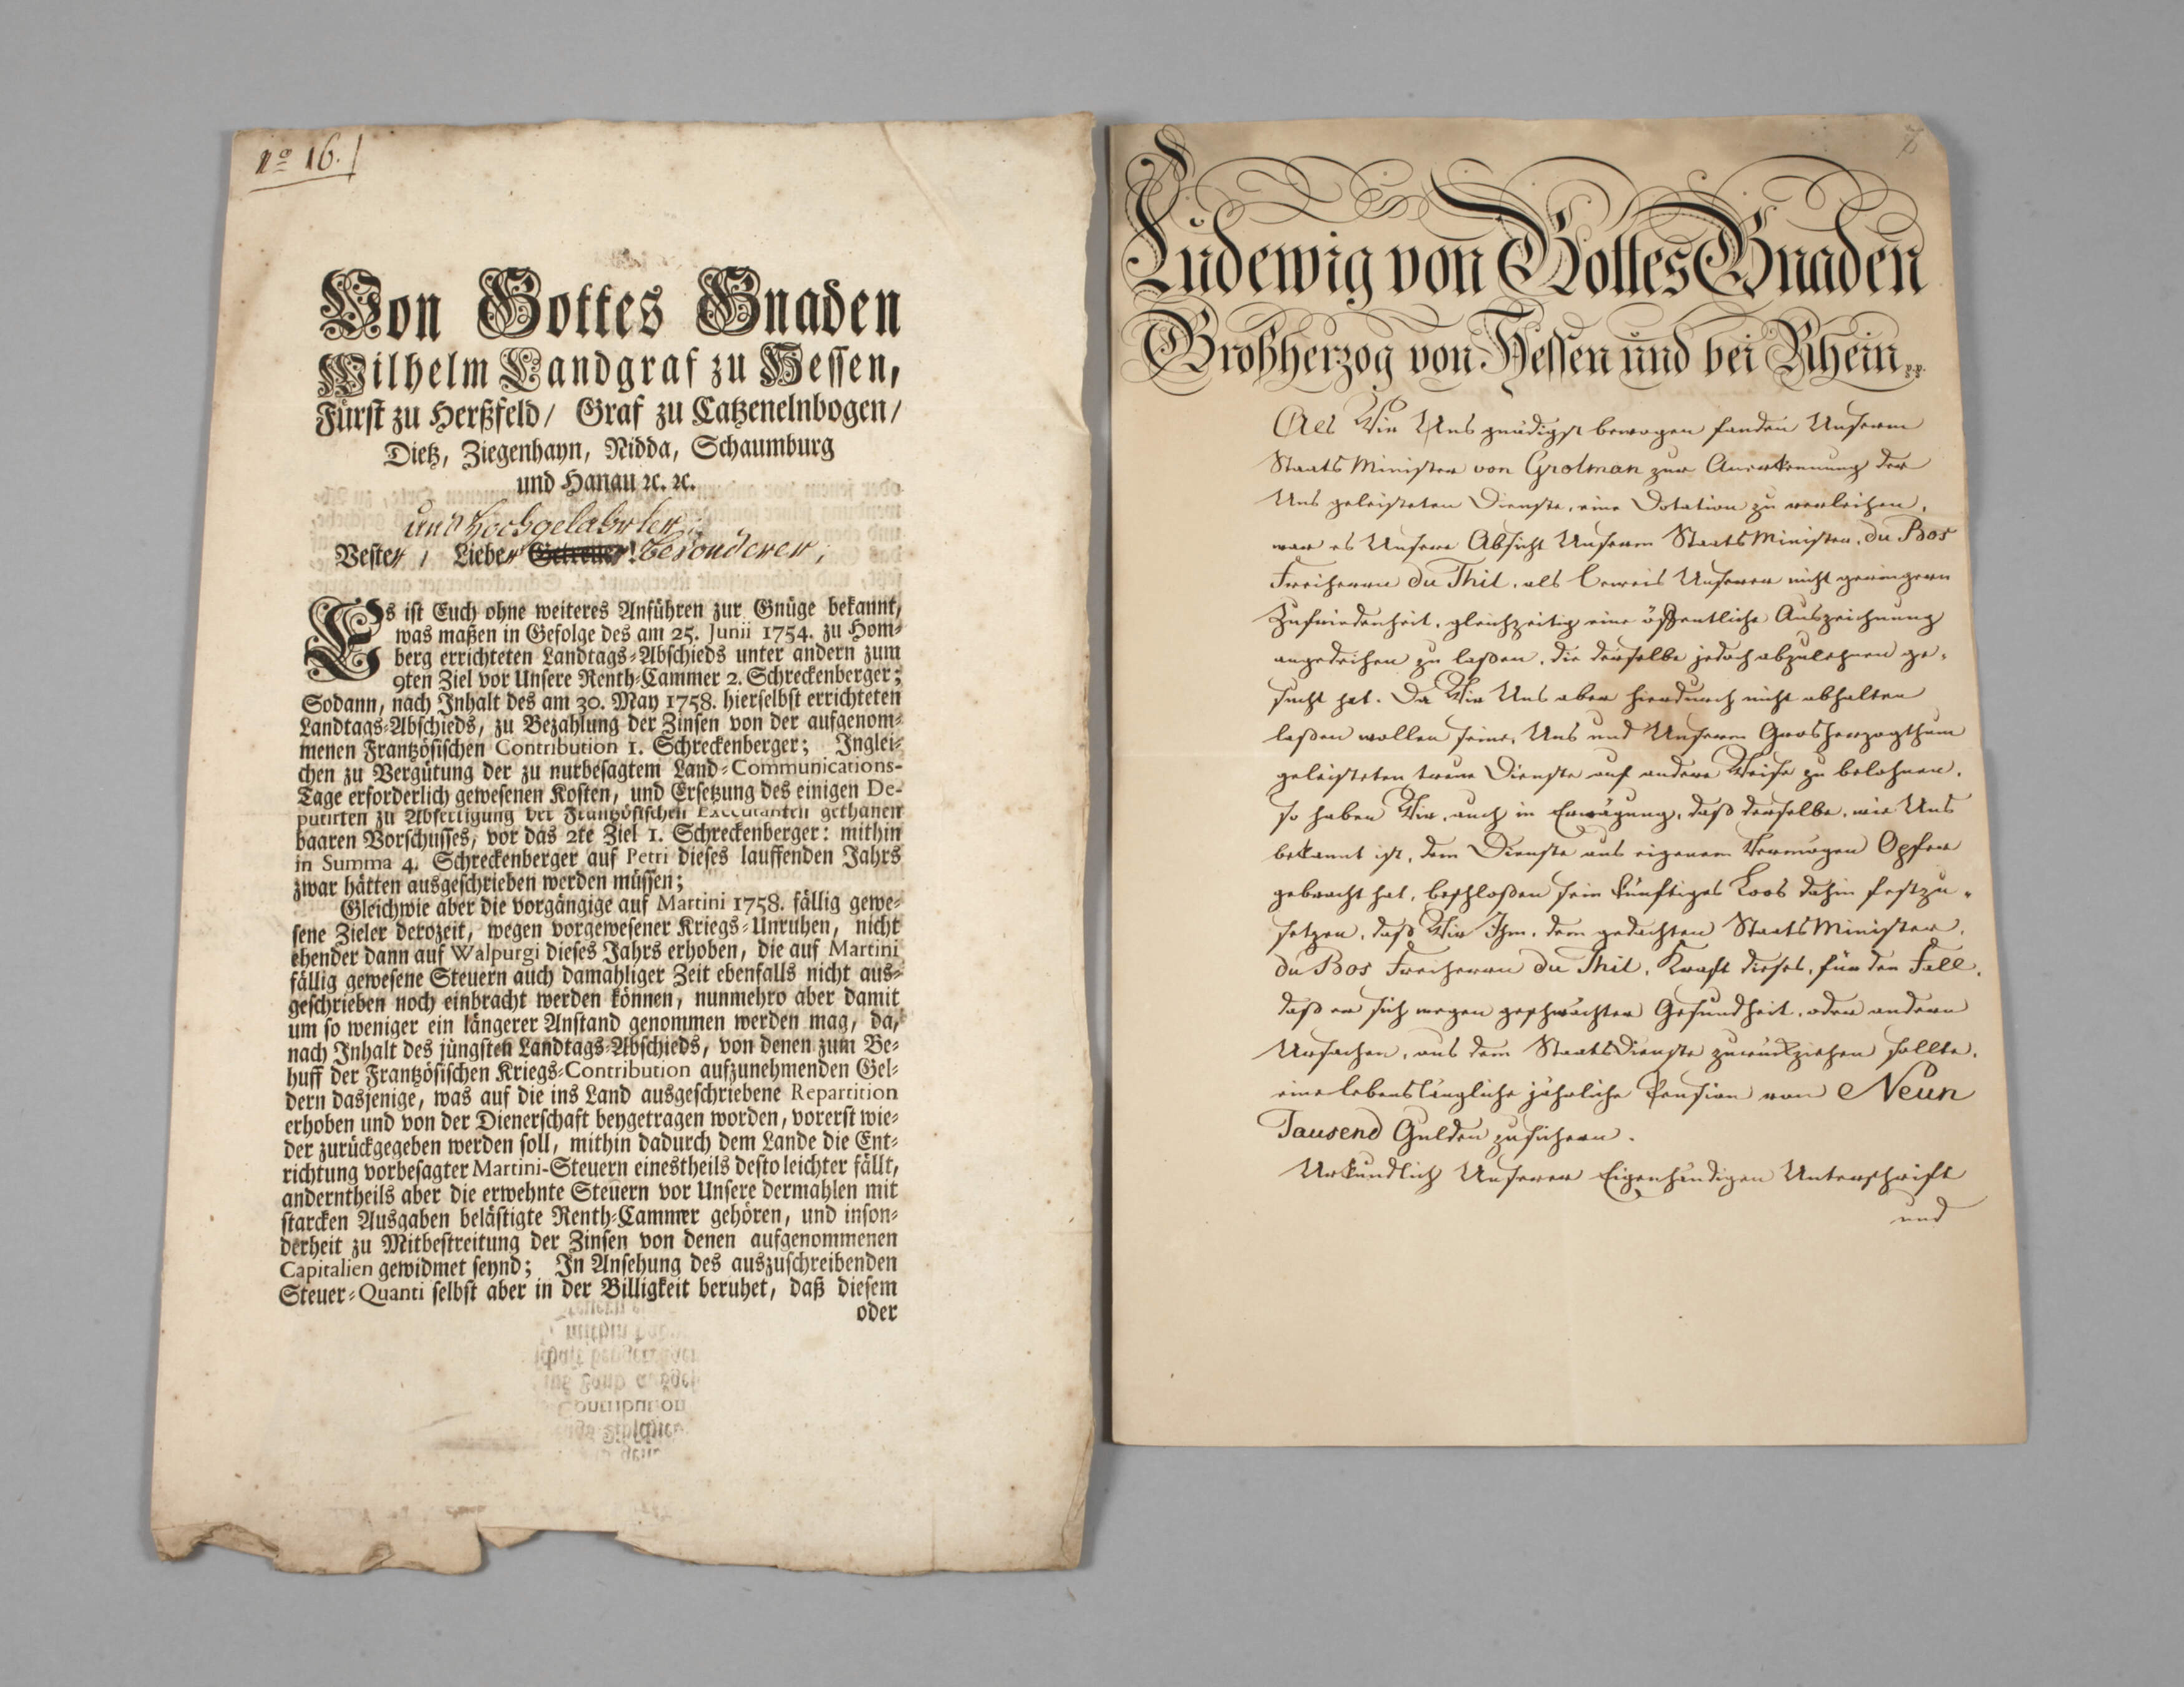 no 16.
Von Gottes Gnaden
Wilhelm Landgraf zu Hessen,
Fürst zu Herßfeld/ Graf zu Catzenelnbogen/
Dietz, Ziegenhayn, Nidda, Schaumburg
und Hanau ꝛc. ꝛc.
und hochgelahrter
Vester, Lieber Getreuer! besonderer,
Es ist Euch ohne weiteres Anführen zur Gnüge bekannt,
was maßen in Gefolge des am 25. Junii 1754. zu Hom-
berg errichteten Landtags-Abschieds unter andern zum
9ten Ziel vor Unsere Renth-Cammer 2. Schreckenberger;
Sodann, nach Inhalt des am 30. May 1758. hierselbst errichteten
Landtags-Abschieds, zu Bezahlung der Zinsen von der aufgenom-
menen Frantzösischen Contribution 1. Schreckenberger; Inglei-
chen zu Vergütung der zu nurbesagtem Land-Communications-
Tage erforderlich gewesenen Kosten, und Ersetzung des einigen De-
putirten zu Abfertigung der Frantzösischen Executanten gethanen
baaren Vorschusses, vor das 2te Ziel 1. Schreckenberger: mithin
in Summa 4. Schreckenberger auf Petri dieses lauffenden Jahrs
zwar hätten ausgeschrieben werden müssen;
Gleichwie aber die vorgängige auf Martini 1758. fällig gewe-
sene Zieler derozeit, wegen vorgewesener Kriegs-Unruhen, nicht
ehender dann auf Walpurgi dieses Jahrs erhoben, die auf Martini
fällig gewesene Steuern auch damahliger Zeit ebenfalls nicht aus-
geschrieben noch einbracht werden können, nunmehro aber damit
um so weniger ein längerer Anstand genommen werden mag, da,
nach Inhalt des jüngsten Landtags-Abschieds, von denen zum Be-
huff der Frantzösischen Kriegs-Contribution aufzunehmenden Gel-
dern dasjenige, was auf die ins Land ausgeschriebene Repartition
erhoben und von der Dienerschaft beygetragen worden, vorerst wie-
der zurückgegeben werden soll, mithin dadurch dem Lande die Ent-
richtung vorbesagter Martini-Steuern einestheils desto leichter fällt,
anderntheils aber die erwehnte Steuern vor Unsere dermahlen mit
starcken Ausgaben belästigte Renth-Cammer gehören, und inson-
derheit zu Mitbestreitung der Zinsen von denen aufgenommenen
Capitalien gewidmet seynd; In Ansehung des auszuschreibenden
Steuer-Quanti selbst aber in der Billigkeit beruhet, daß diesem
oder
Ludewig von Gottes Gnaden
Großherzog von Hessen und bei Rhein
Als Wir Uns gnädigst bewogen fanden Unserm
Staats Minister von Grolman zur Anerkennung der
Uns geleisteten Dienste, eine Dotation zu verleihen,
war es Unsere Absicht Unserm Staats Minister, du Bos
Freiherrn du Thil, als Beweis Unserer nicht geringern
Zufriedenheit, gleichzeitig eine öffentliche Auszeichnung
angedeihen zu laßen, die derselbe jedoch abzulehnen ge-
sucht hat. Da Wir Uns aber hierdurch nicht abhalten
laßen wollen seine, Uns und Unserm Grosherzogthum
geleisteten treue Dienste auf andere Weise zu belohnen,
so haben Wir, auch in Erwägung, daß derselbe, wie Uns
bekannt ist, dem Dienste aus eigenem Vermögen Opfer
gebracht hat, beschloßen sein künftiges Loos dahin festzu-
setzen, daß Wir Ihm, dem gedachten Staats Minister,
du Bos Freiherrn du Thil, Kraft dieses, für den Fall,
daß er sich wegen geschwächter Gesundheit, oder andern
Ursachen, aus dem Staats Dienste zurückziehen sollte,
eine lebenslängliche jährliche Pension von Neun
Tausend Gulden zusichern.
Urkundlich Unserer Eigenhändigen Unterschrift
und